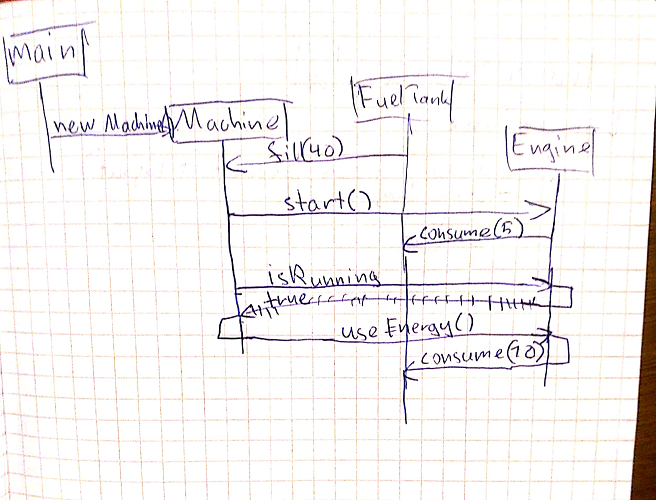 Main
FuelTank
new Machine()
Machine
Engine
fill(40)
start()
consume(5)
isRunning
true
useEnergy()
consume(10)